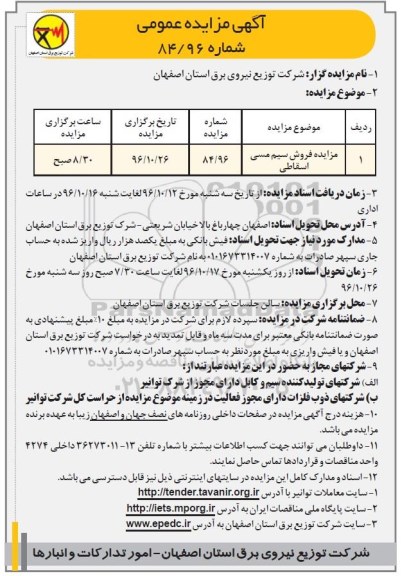 آگهی مزایده عمومی
شماره ۸۴/۹۶
شرکت توزیع برق استان اصفهان
۱- نام مزایده گزار: شرکت توزیع نیروی برق استان اصفهان
۲- موضوع مزایده:
ردیف موضوع مزایده شماره مزایده تاریخ برگزاری مزایده ساعت برگزاری مزایده
۱ مزایده فروش سیم مسی اسقاطی ۸۴/۹۶ ۹۶/۱۰/۲۶ ۸/۳۰ صبح
۳- زمان دریافت اسناد مزایده: از تاریخ سه شنبه مورخ ۹۶/۱۰/۱۲ لغایت شنبه ۹۶/۱۰/۱۶ در ساعات
اداری
۴- آدرس محل تحویل اسناد: اصفهان چهارباغ بالا خیابان شریعتی- شرکت توزیع برق استان اصفهان
۵- مدارک مورد نیاز جهت تحویل اسناد: فیش بانکی به مبلغ یکصد هزار ریال واریز شده به حساب
جاری سپهر صادرات به شماره ۰۱۰۱۶۷۳۳۱۴۰۰۷ به نام شرکت توزیع برق استان اصفهان
۶- زمان تحویل اسناد: از روز یکشنبه مورخ ۹۶/۱۰/۱۷ لغایت ساعت ۷/۳۰ صبح روز سه شنبه مورخ
۹۶/۱۰/۲۶
۷- محل برگزاری مزایده: سالن جلسات شرکت توزیع برق استان اصفهان
۸- ضمانتنامه شرکت در مزایده: سپرده لازم برای شرکت در مزایده به مبلغ ۱۰٪ مبلغ پیشنهادی به
صورت ضمانتنامه بانکی معتبر برای مدت سه ماه و قابل تمدید به درخواست شرکت توزیع برق استان
اصفهان و یا فیش واریزی به مبلغ مورد نظر به حساب سپهر صادرات به شماره ۰۱۰۱۶۷۳۳۱۴۰۰۷
۹- شرکتهای مجاز به حضور در این مزایده عبارتند از:
الف) شرکتهای تولید کننده سیم و کابل دارای مجوز از شرکت توانیر
ب) شرکتهای ذوب فلزات دارای مجوز فعالیت در زمینه موضوع مزایده از حراست کل شرکت توانیر
۱۰- هزینه درج آگهی مزایده در صفحات داخلی روزنامه های نصف جهان و اصفهان زیبا به عهده برنده
مزایده می باشد.
۱۱- داوطلبان می توانند جهت کسب اطلاعات بیشتر با شماره تلفن ۱۳-۳۶۲۷۳۰۱۱ داخلی ۴۲۷۴
واحد مناقصات و قراردادها تماس حاصل نمایند.
۱۲- اسناد و مدارک کامل این مزایده در سایتهای اینترنتی ذیل نیز قابل دسترسی می باشد.
۱- سایت معاملات توانیر با آدرس http://tender.tavanir.org.ir
۲- سایت پایگاه ملی مناقصات ایران به آدرس http://iets.mporg.ir
۳- سایت شرکت توزیع برق استان اصفهان به آدرس www.epedc.ir
شرکت توزیع نیروی برق استان اصفهان - امور تدارکات و انبارها